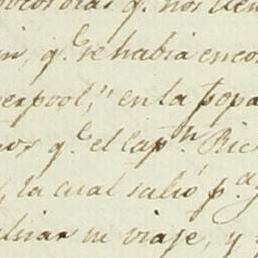 q.e nos
n, q.e se habia enco
erpool," en la popa
os q.e el cap.n Ric
, la cual salió p.a
su viaje, y